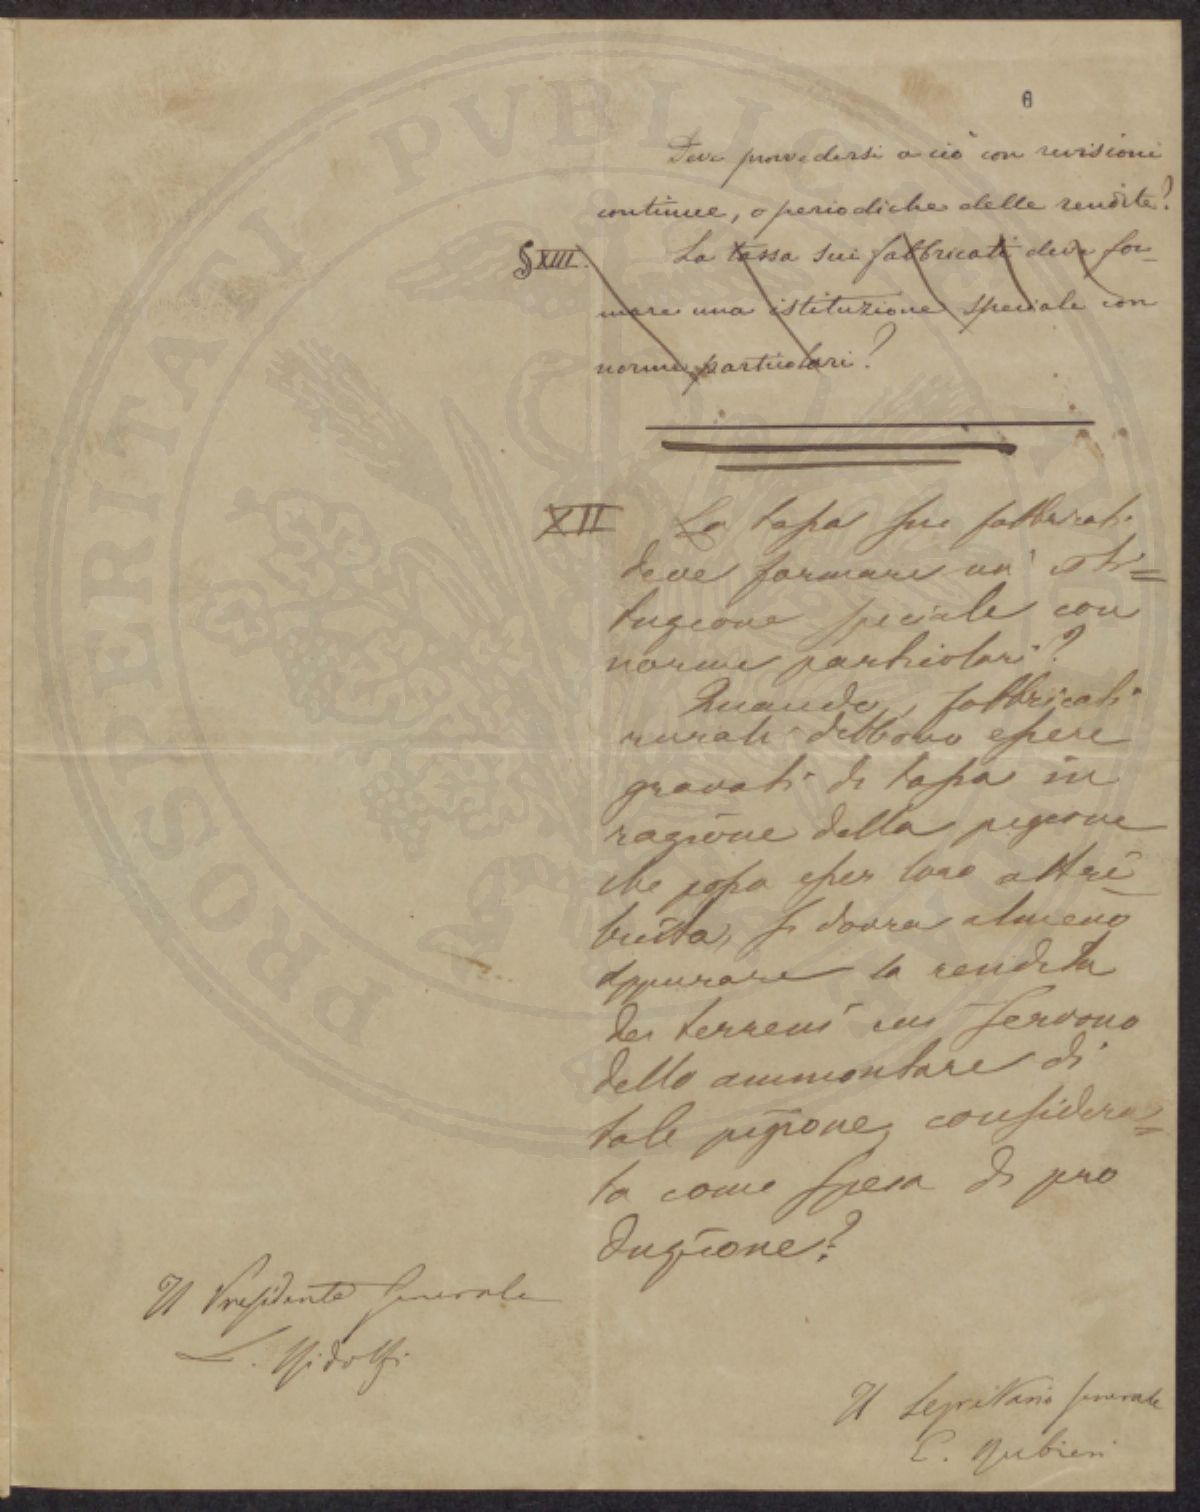 6
Deve provvedersi a ciò con revisioni
continue, o periodiche delle rendite?
§ XIII. La tassa sui fabbricati deve for-
mare una istituzione speciale con
norme particolari?
XII La tassa sui fabbricati
deve formare un' isti=
tuzione speciale con
norme particolari?
Quando i fabbricati
rurali debbono essere
gravati di tassa in
ragione della pigione
che possa esser loro attri-
buita, si dovrà almeno
appurare la rendita
dei terreni cui servono
dello ammontare di
tale pigione, considera=
ta come spesa di pro
duzione?
Il Presidente Generale
L. Ridolfi
Il Segretario Generale
E. Rubieri
PROSPERITATI PVBLICAE